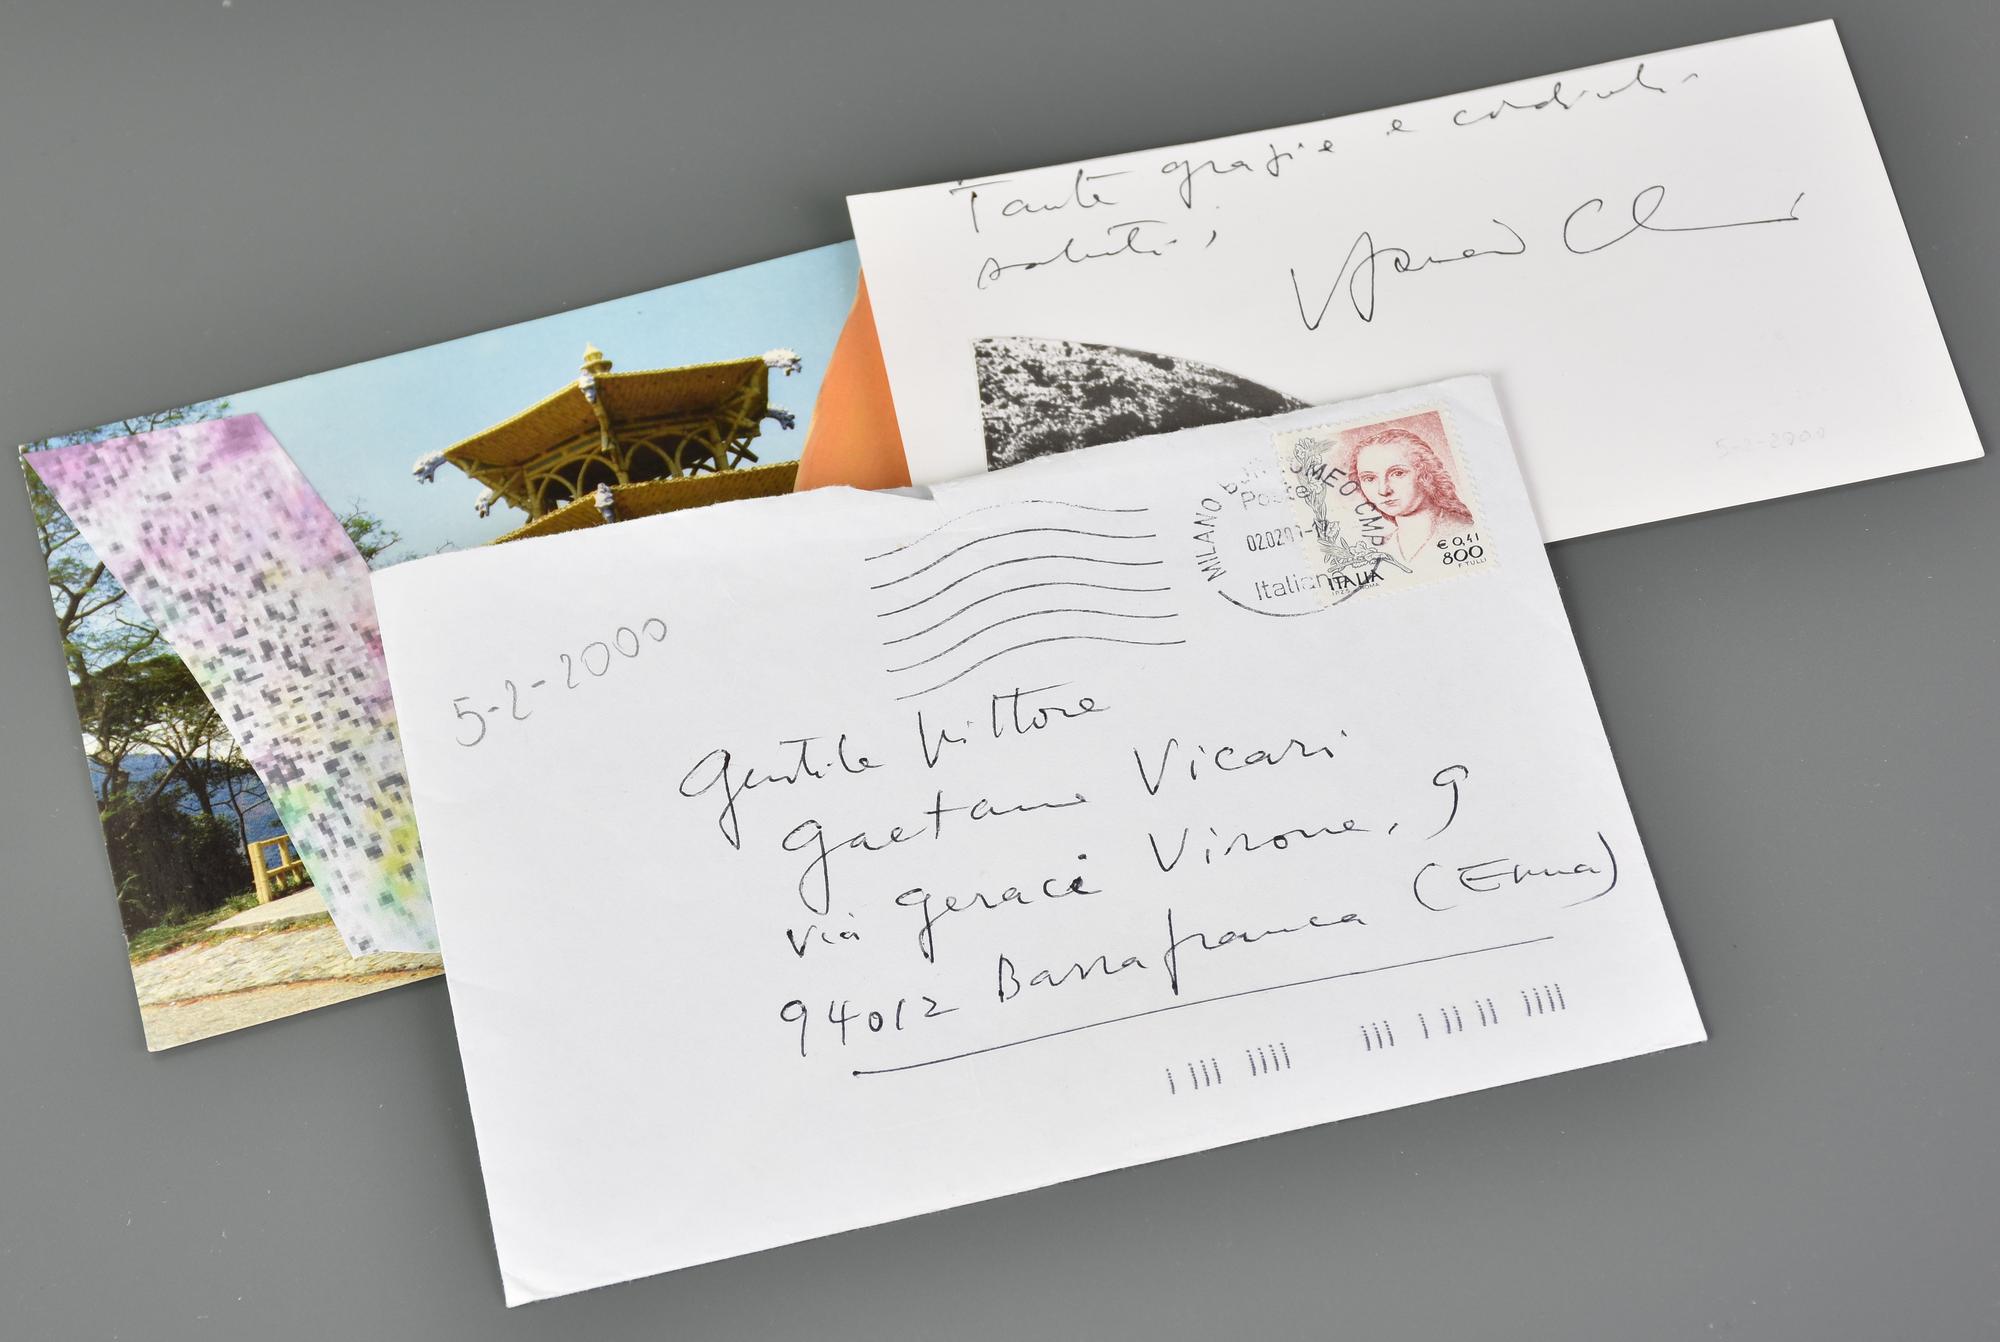 Tante grazie e cordiali
saluti,
5-2-2000
MILANO
Poste
Italiane
ITALIA
€ 0,41
800
F. TULLI
5-2-2000
Gentile Pittore
Gaetano Vicari
via Geraci Virone, 9
94012 Barrafranca (Enna)